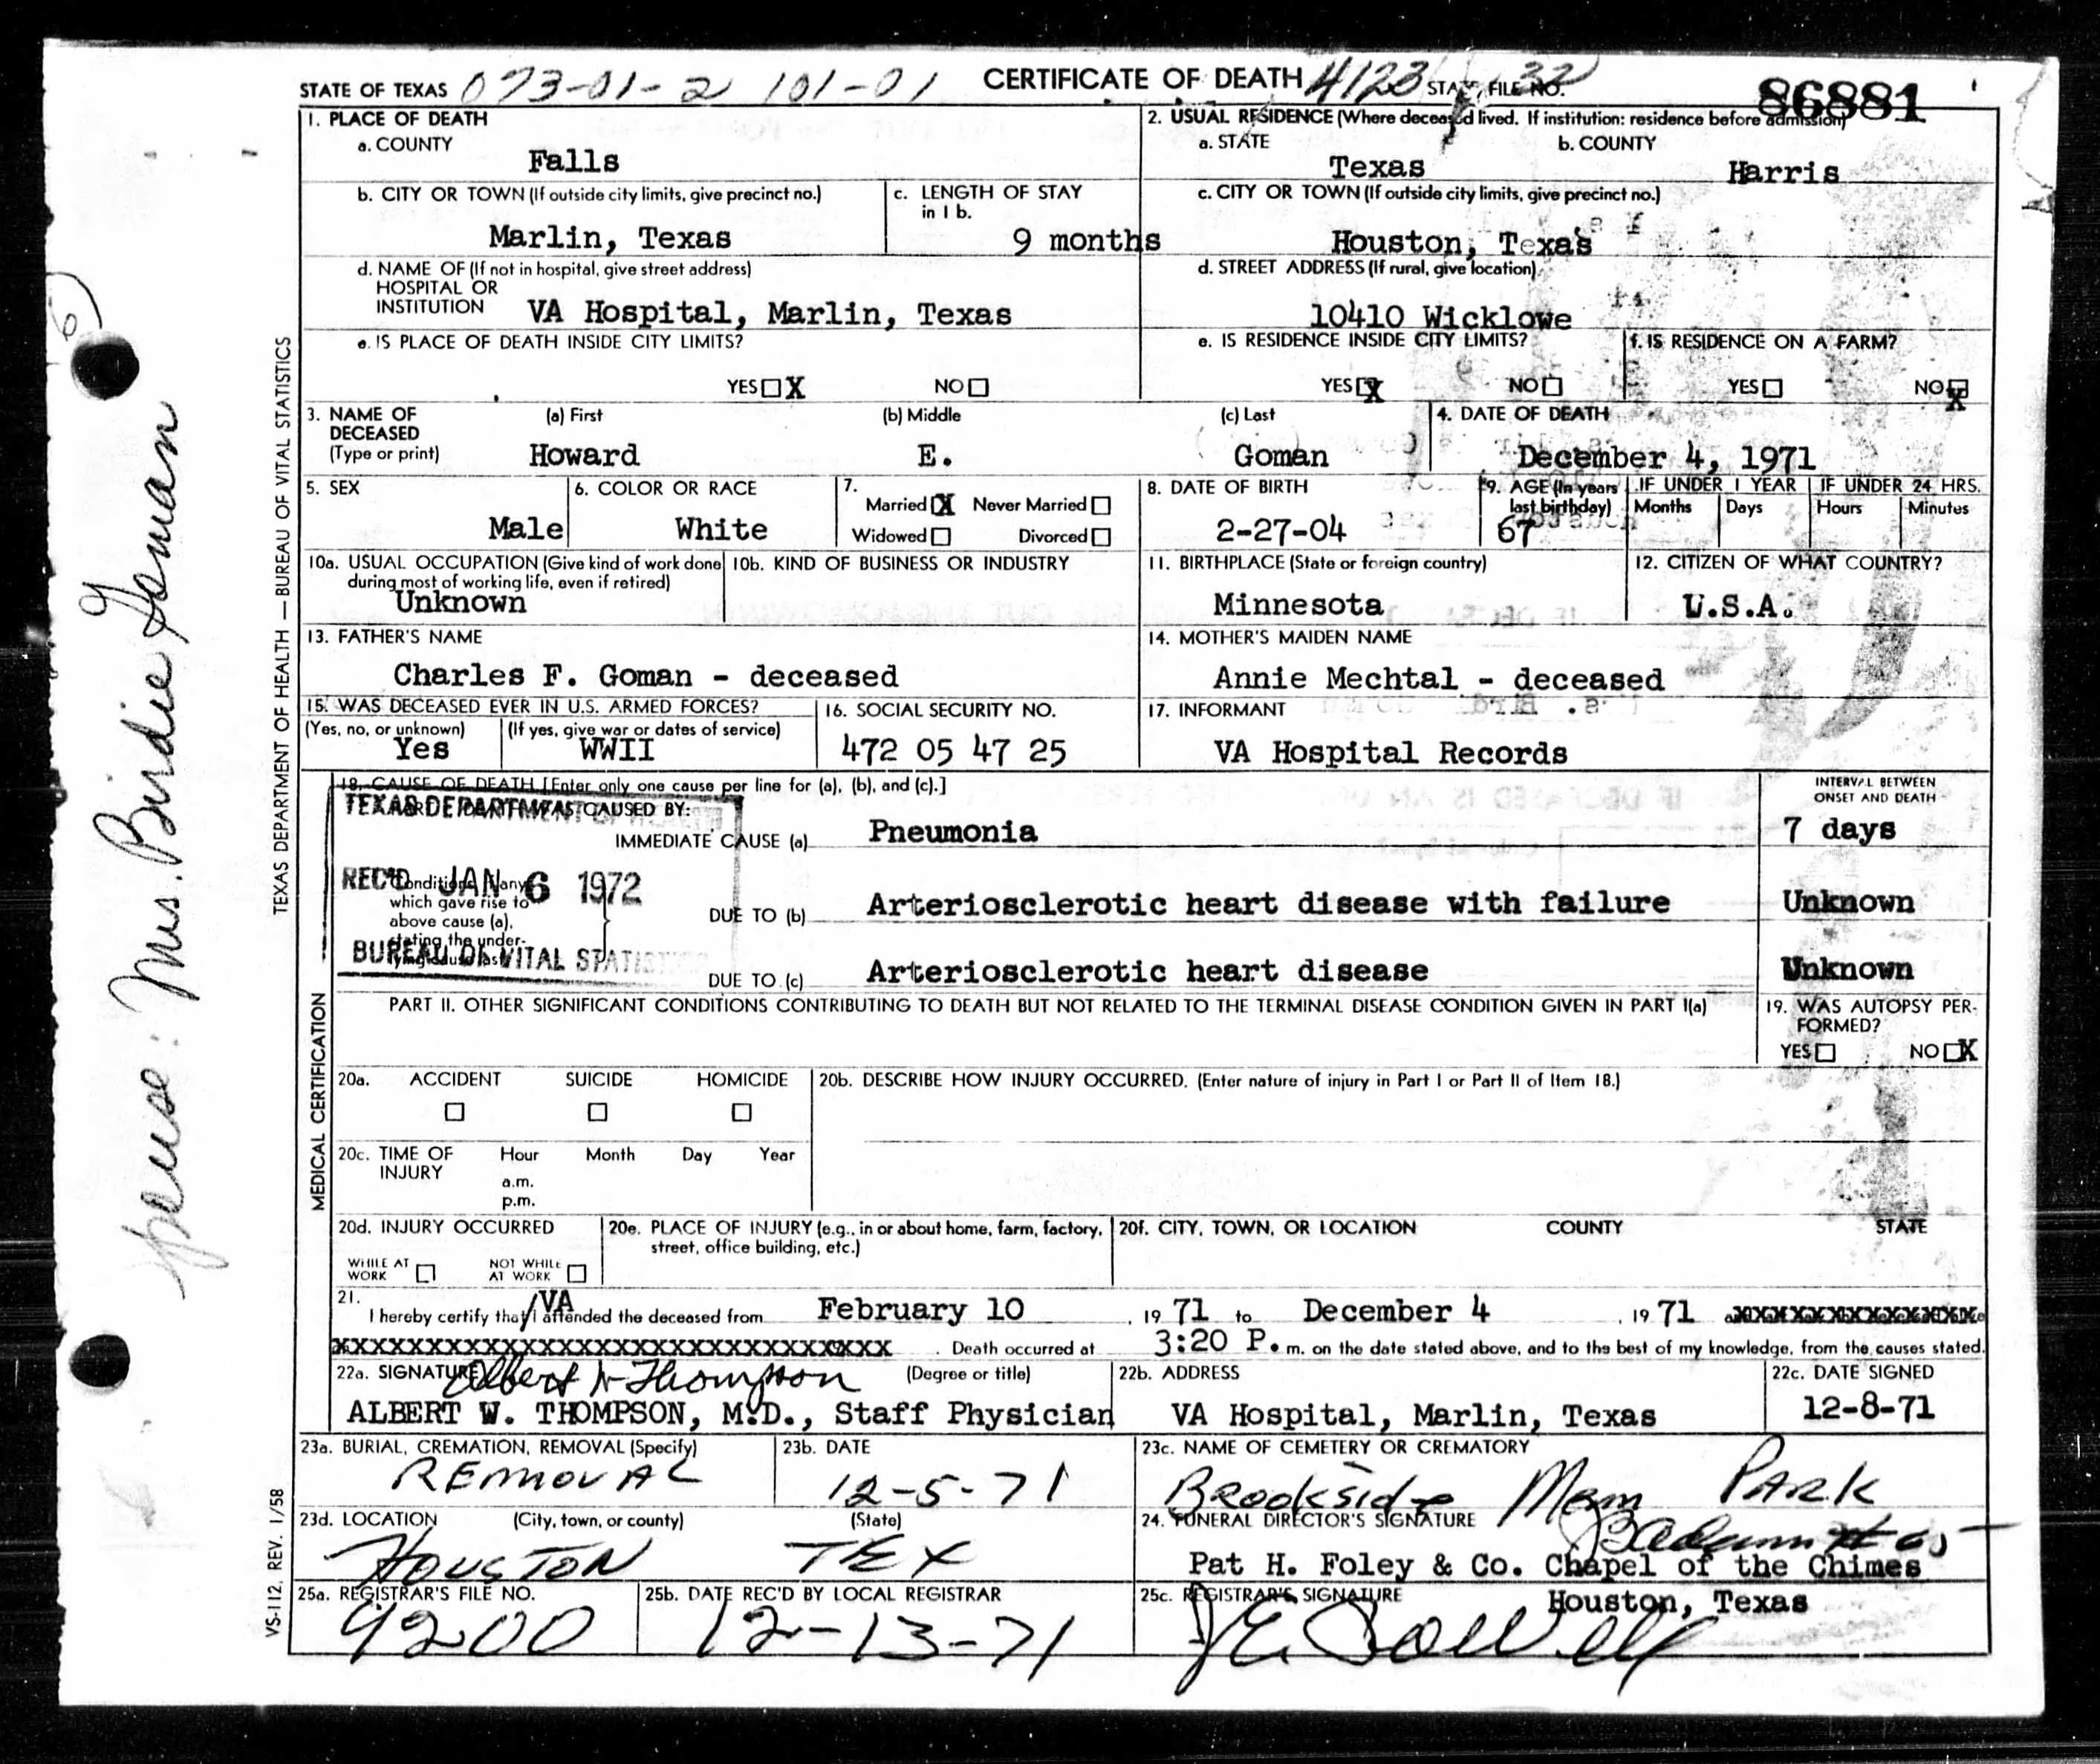 STATE OF TEXAS 073-01-2 101-01 CERTIFICATE OF DEATH 4123 STATE FILE NO. 32 86881
1. PLACE OF DEATH
a. COUNTY
Falls
2. USUAL RESIDENCE (Where deceased lived. If institution: residence before admission)
a. STATE b. COUNTY
Texas Harris
b. CITY OR TOWN (If outside city limits, give precinct no.)
Marlin, Texas
c. LENGTH OF STAY
in 1 b.
9 months
c. CITY OR TOWN (If outside city limits, give precinct no.)
Houston, Texas
d. NAME OF (If not in hospital, give street address)
HOSPITAL OR
INSTITUTION VA Hospital, Marlin, Texas
d. STREET ADDRESS (If rural, give location)
10410 Wicklowe
e. IS PLACE OF DEATH INSIDE CITY LIMITS?
YES X NO
e. IS RESIDENCE INSIDE CITY LIMITS?
YES X NO
f. IS RESIDENCE ON A FARM?
YES NO X
3. NAME OF
DECEASED
(Type or print)
(a) First (b) Middle (c) Last
Howard E. Goman
4. DATE OF DEATH
December 4, 1971
5. SEX
Male
6. COLOR OR RACE
White
7.
Married X Never Married
Widowed Divorced
8. DATE OF BIRTH
2-27-04
9. AGE (In years
last birthday)
67
IF UNDER 1 YEAR
Months Days
IF UNDER 24 HRS.
Hours Minutes
10a. USUAL OCCUPATION (Give kind of work done
during most of working life, even if retired)
Unknown
10b. KIND OF BUSINESS OR INDUSTRY
11. BIRTHPLACE (State or foreign country)
Minnesota
12. CITIZEN OF WHAT COUNTRY?
U.S.A.
13. FATHER'S NAME
Charles F. Goman - deceased
14. MOTHER'S MAIDEN NAME
Annie Mechtal - deceased
15. WAS DECEASED EVER IN U.S. ARMED FORCES?
(Yes, no, or unknown) (If yes, give war or dates of service)
Yes WWII
16. SOCIAL SECURITY NO.
472 05 47 25
17. INFORMANT
VA Hospital Records
18. CAUSE OF DEATH [Enter only one cause per line for (a), (b), and (c).]
WAS CAUSED BY:
IMMEDIATE CAUSE (a) Pneumonia
INTERVAL BETWEEN
ONSET AND DEATH
7 days
REC'D JAN 6 1972
which gave rise to
above cause (a),
stating the under-
BUREAU OF VITAL STATISTICS
DUE TO (b) Arteriosclerotic heart disease with failure Unknown
DUE TO (c) Arteriosclerotic heart disease Unknown
PART II. OTHER SIGNIFICANT CONDITIONS CONTRIBUTING TO DEATH BUT NOT RELATED TO THE TERMINAL DISEASE CONDITION GIVEN IN PART I(a)
19. WAS AUTOPSY PER-
FORMED?
YES NO X
20a. ACCIDENT SUICIDE HOMICIDE
20b. DESCRIBE HOW INJURY OCCURRED. (Enter nature of injury in Part I or Part II of Item 18.)
20c. TIME OF
INJURY
Hour Month Day Year
a.m.
p.m.
20d. INJURY OCCURRED
WHILE AT
WORK
NOT WHILE
AT WORK
20e. PLACE OF INJURY (e.g., in or about home, farm, factory,
street, office building, etc.)
20f. CITY, TOWN, OR LOCATION COUNTY STATE
21.
I hereby certify that /VA I attended the deceased from February 10, 1971 to December 4, 1971
Death occurred at 3:20 P. m. on the date stated above, and to the best of my knowledge, from the causes stated.
22a. SIGNATURE Albert W Thompson (Degree or title)
ALBERT W. THOMPSON, M.D., Staff Physician
22b. ADDRESS
VA Hospital, Marlin, Texas
22c. DATE SIGNED
12-8-71
23a. BURIAL, CREMATION, REMOVAL (Specify)
REMOVAL
23b. DATE
12-5-71
23c. NAME OF CEMETERY OR CREMATORY
Brookside Mem PARK
23d. LOCATION (City, town, or county) (State)
HOUSTON TEX
24. FUNERAL DIRECTOR'S SIGNATURE
Pat H. Foley & Co. Chapel of the Chimes
Houston, Texas
25a. REGISTRAR'S FILE NO.
9200
25b. DATE REC'D BY LOCAL REGISTRAR
12-13-71
25c. REGISTRAR'S SIGNATURE
TEXAS DEPARTMENT OF HEALTH — BUREAU OF VITAL STATISTICS
MEDICAL CERTIFICATION
VS-112. REV. 1/58
Mrs. Birdie Goman